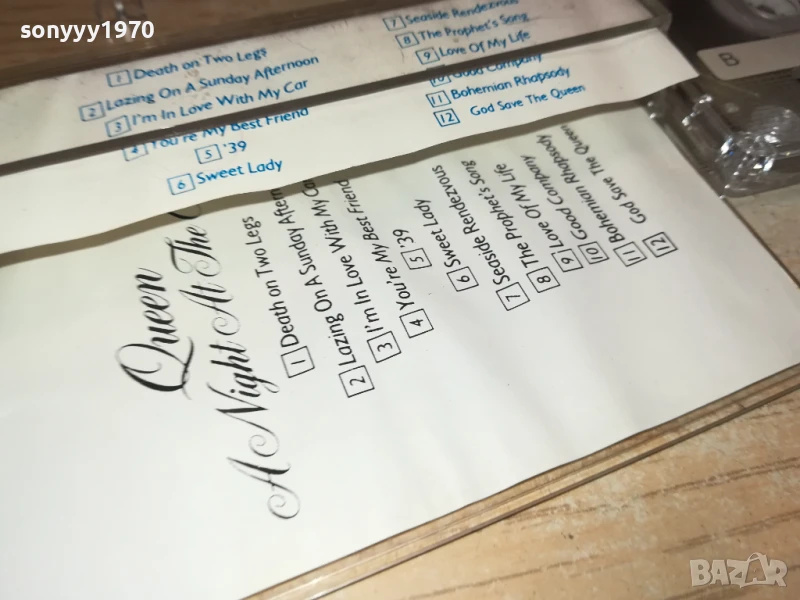 sonyyy1970
1 Death on Two Legs
2 Lazing On A Sunday Afternoon
3 I'm In Love With My Car
4 You're My Best Friend
5 '39
6 Sweet Lady
7 Seaside Rendezvous
8 The Prophet's Song
9 Love Of My Life
10 Good Company
11 Bohemian Rhapsody
12 God Save The Queen
B
Queen
A Night At The
1 Death on Two Legs
2 Lazing On A Sunday Aftern
3 I'm In Love With My Ca
4 You're My Best Friend
5 '39
6 Sweet Lady
7 Seaside Rendezvous
8 The Prophet's Song
9 Love Of My Life
10 Good Company
11 Bohemian Rhapsody
12 God Save The Queen
BAZAR